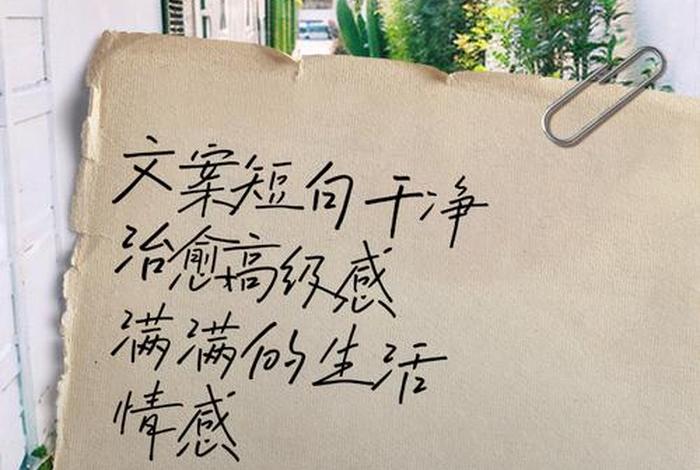 文案短句干净
治愈高级感
满满的生活
情感